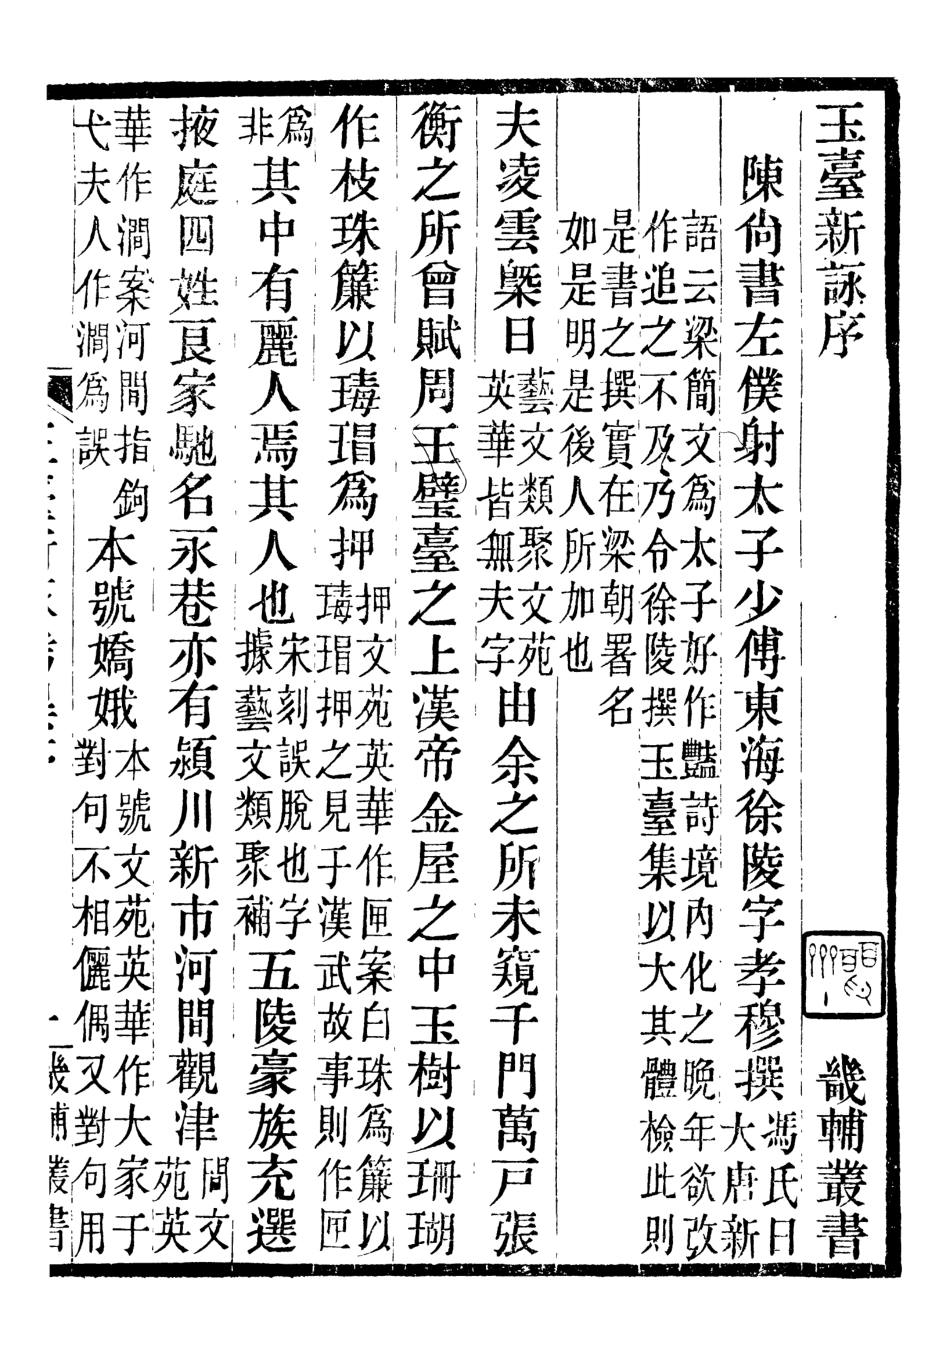 玉臺新詠序　畿輔叢書
陳尚書左僕射太子少傅東海徐陵字孝穆撰馮氏曰大唐新
語云梁簡文爲太子好作豔詩境內化之晚年欲改作追之不及乃令徐陵撰玉臺集以大其體檢此則
是書之撰實在梁朝署名如是明是後人所加也
夫凌雲槩日藝文類聚文苑英華皆無夫字由余之所未窺千門萬戸張
衡之所曾賦周王璧臺之上漢帝金屋之中玉樹以珊瑚
作枝珠簾以瑇瑁爲押押文苑英華作匣案白珠爲簾以瑇瑁押之見于漢武故事則作匣
爲非其中有麗人焉其人也宋刻誤脫也字據藝文類聚補五陵豪族充選
掖庭四姓良家馳名永巷亦有潁川新市河間觀津間文苑英
華作澗案河間指鉤弋夫人作澗爲誤本號嬌娥本號文苑英華作大家于對句不相儷偶又對句用
畿輔叢書